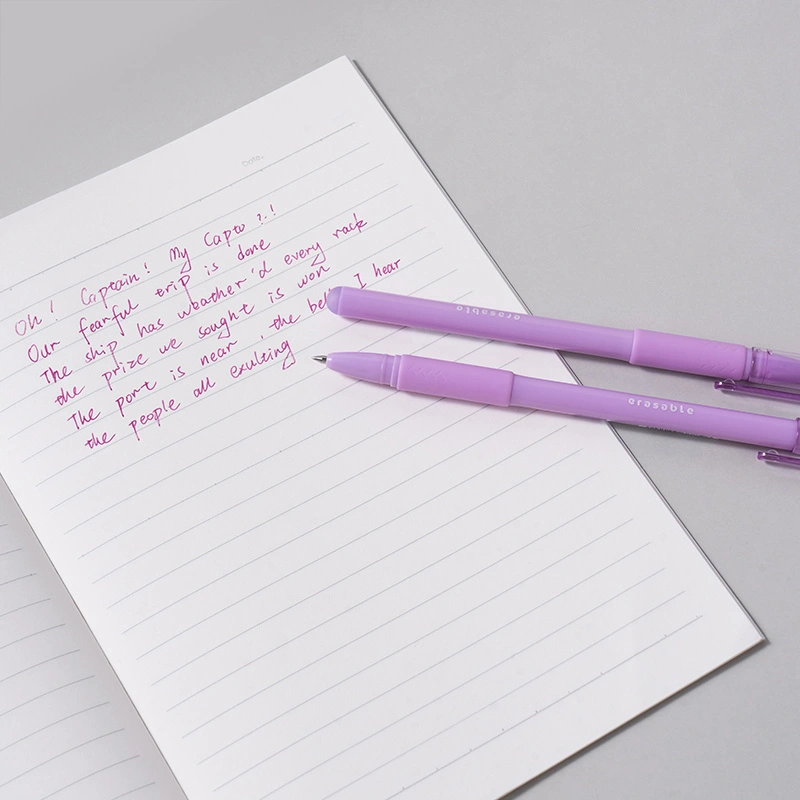 Date.
Oh! Captain! My Capta ?.!
Our fearful trip is done
The ship has weather'd every rack
the prize we sought is won
The port is near the I hear
the people all exulting
erasable
erasable